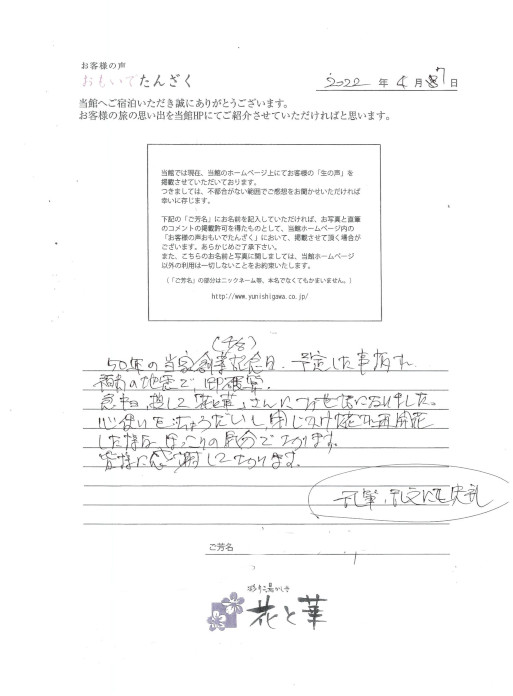 お客様の声
おもいでたんざく
2022 年 4 月 7 日
当館へご宿泊いただき誠にありがとうございます。
お客様の旅の思い出を当館HPにてご紹介させていただければと思います。
当館では現在、当館のホームページ上にてお客様の「生の声」を
掲載させていただいております。
つきましては、不都合がない範囲でご感想をお聞かせいただければ
幸いに存じます。
下記の「ご芳名」にお名前を記入していただければ、お写真と直筆
のコメントの掲載許可を得たものとして、当館ホームページ内の
「お客様の声おもいでたんざく」において、掲載させて頂く場合が
ございます。あらかじめご了承下さい。
また、こちらのお名前と写真に関しましては、当館ホームページ
以外の利用は一切しないことをお約束いたします。
(「ご芳名」の部分はニックネーム等、本名でなくてもかまいません。)
http://www.yunishigawa.co.jp/
50年の当家創業記念日、予定した事
の地震で
して「花と華」さんにお世話になりました。
心使いをちょうだいし、再開花
した様な ほっこりの気分でおります。
皆様に感謝しております。
乱筆、乱文にて失礼
ご芳名
花と華